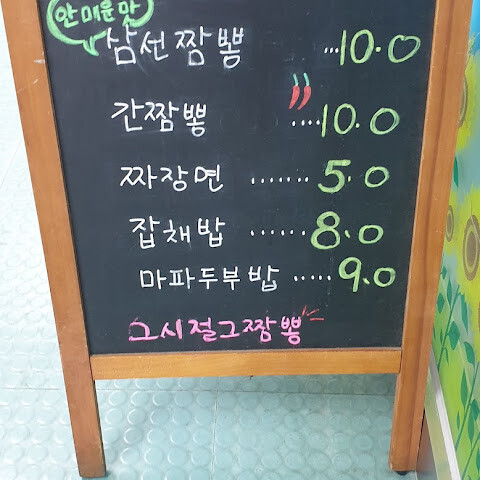 안매운맛
삼선짬뽕 ...10.0
간짬뽕 ....10.0
짜장면 ....... 5.0
잡채밥 ...... 8.0
마파두부밥 ..... 9.0
그시절그짬뽕